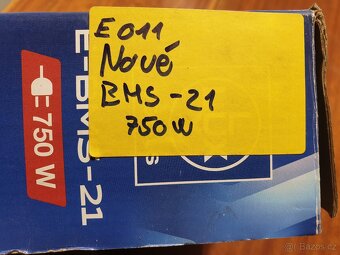 E 011
Nové
BMS-21
750 W
E-BMS-21
750 W
S
bazos.cz